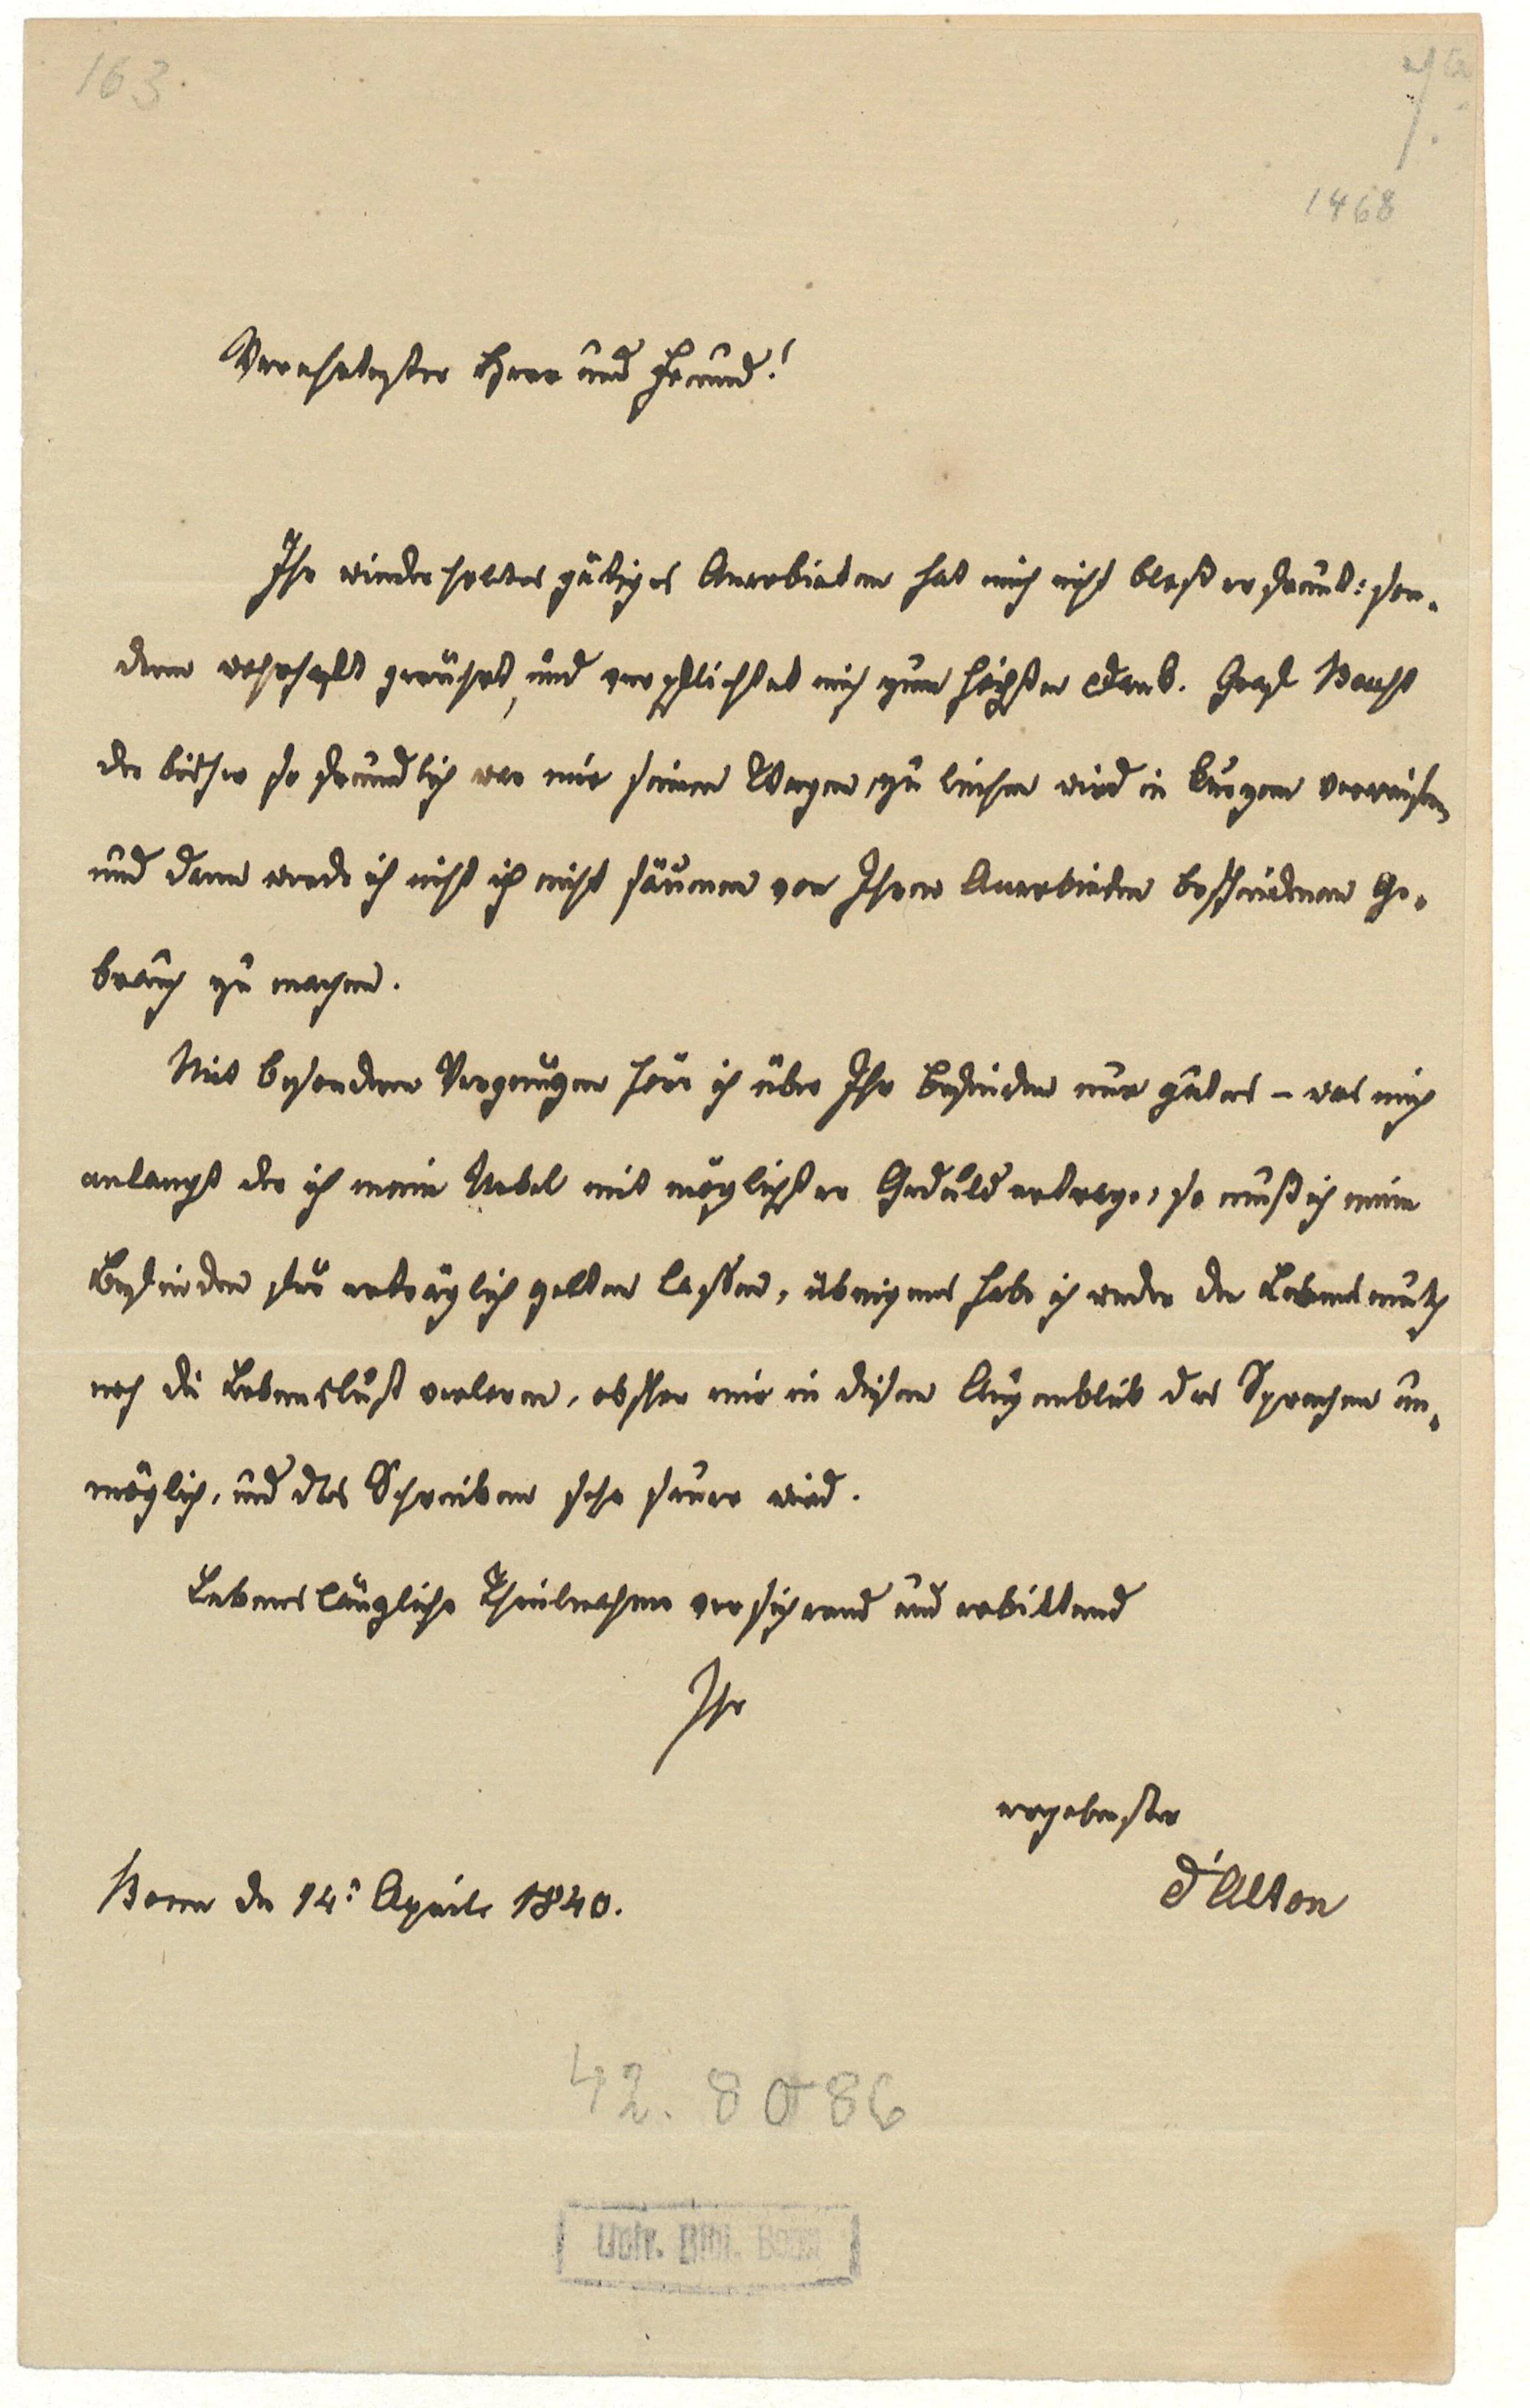 163.
1468
Verehrtester Herr und Freund!
Ihr wiederholtes gütiges Anerbieten hat mich nicht bloß erfreut: son-
dern wahrhaft gerührt, und verpflichtet mich zum höchsten Dank. Graf Beust
der bisher so freundlich war mir seinen Wagen zu leihen wird in kurzem verreisen
und dann werde ich nicht ich nicht säumen von Ihrem Anerbieten bescheidenen Ge-
brauch zu machen.
Mit besonderm Vergnügen höre ich über Ihr Befinden nur gutes – was mich
anlangt der ich mein Uebel mit möglichster Geduld ertrage, so muß ich mein
Befinden für erträglich gelten lassen, übrigens habe ich weder den Lebensmuth
noch die Lebenslust verloren, obschon mir in diesem Augenblick das Sprechen un-
möglich, und das Schreiben sehr sauer wird.
Lebenslängliche Theilnahme versichrend und erbittend
Ihr
ergebenster
d'Alton
Bonn den 14: April 1840.
42. 8086
Univ. Bibl. Bonn